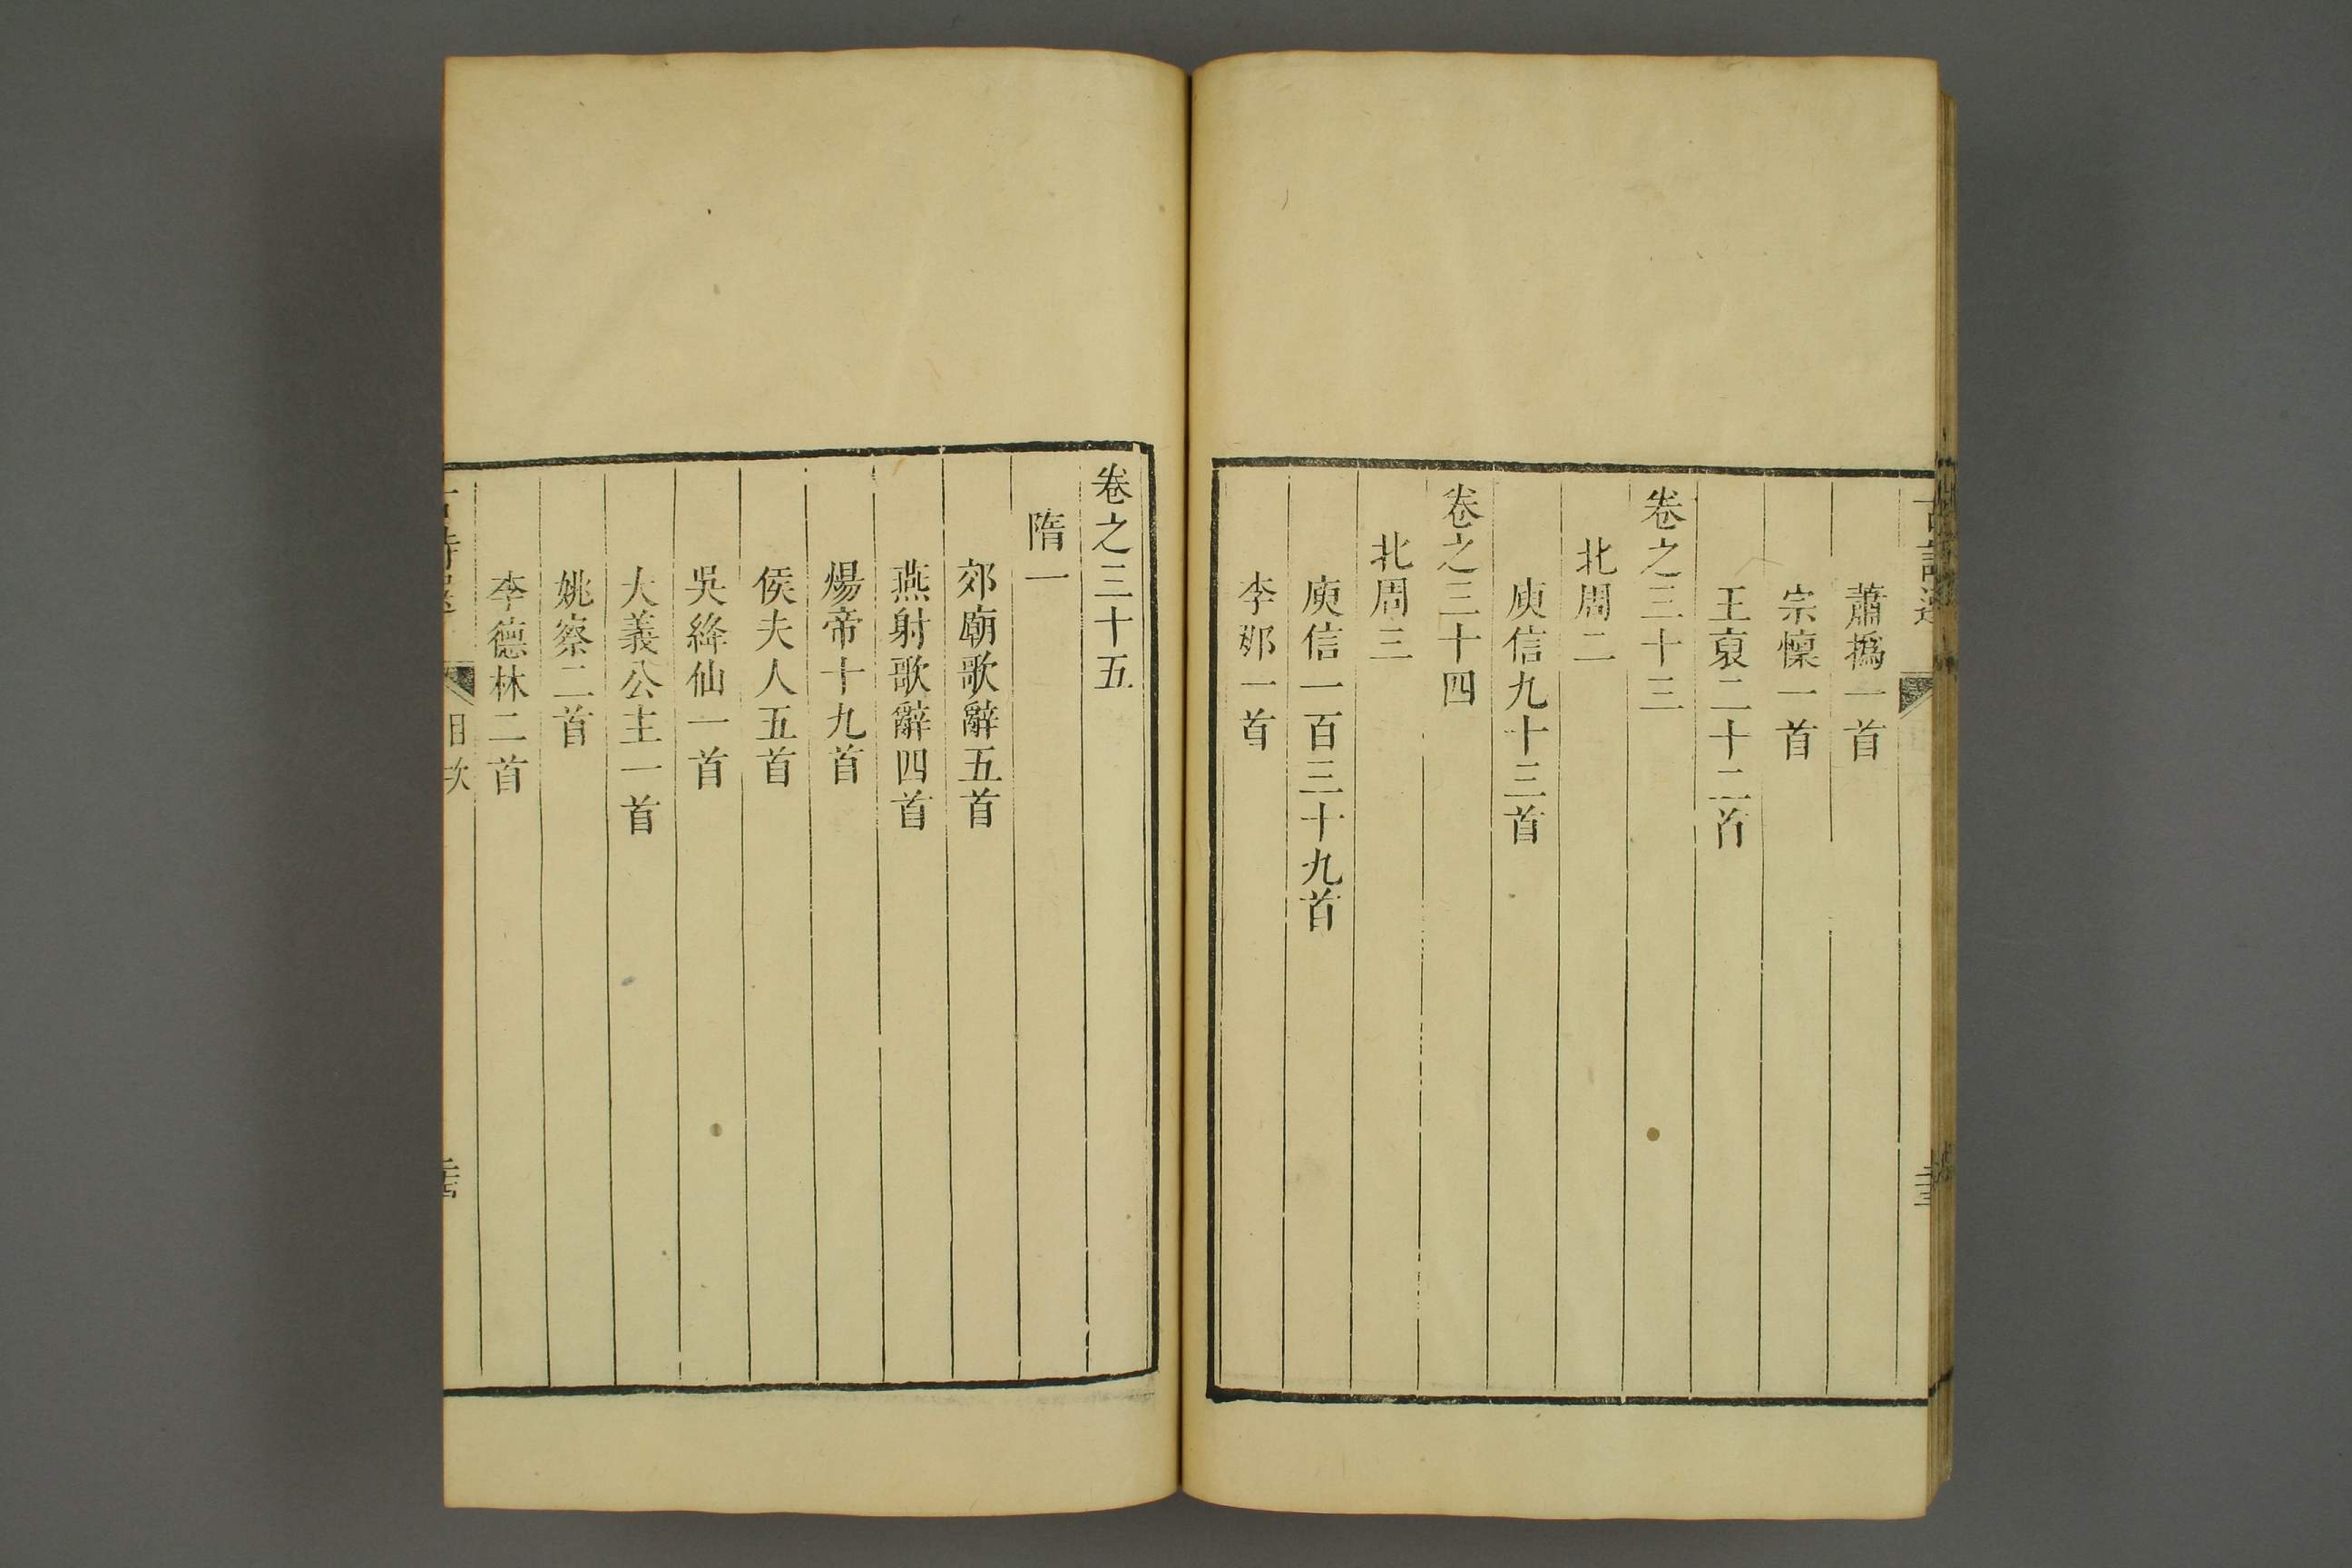 蕭撝一首
宗懍一首
王裒二十二首
卷之三十三
北周二
庾信九十三首
卷之三十四
北周三
庾信一百三十九首
李那一首
卷之三十五
隋一
郊廟歌辭五首
燕射歌辭四首
煬帝十九首
侯夫人五首
吳絳仙一首
大義公主一首
姚察二首
李德林二首
目次